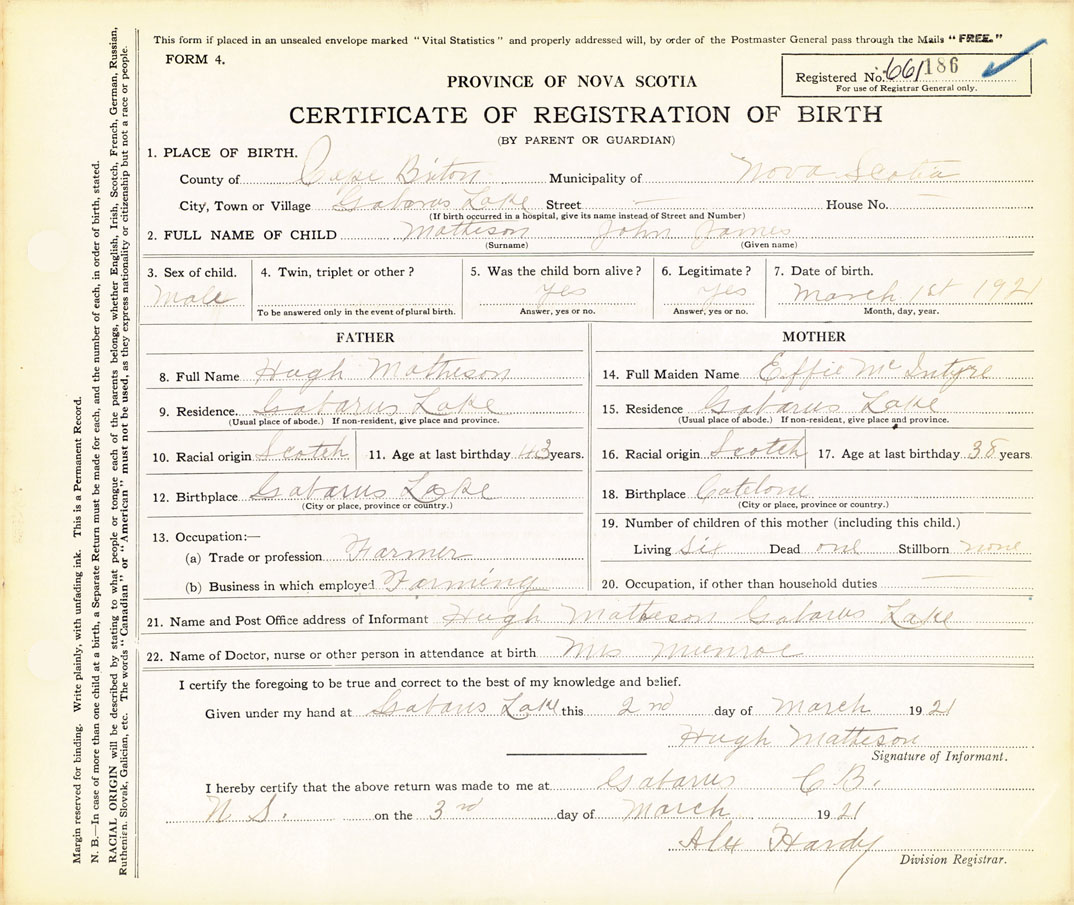 This form if placed in an unsealed envelope marked "Vital Statistics" and properly addressed will, by order of the Postmaster General pass through the Mails "FREE."
FORM 4.
Registered No. 661186
For use of Registrar General only.
PROVINCE OF NOVA SCOTIA
CERTIFICATE OF REGISTRATION OF BIRTH
(BY PARENT OR GUARDIAN)
1. PLACE OF BIRTH.
County of Cape Briton Municipality of Nova Scotia
City, Town or Village Gabarus Lake Street — House No. —
(If birth occurred in a hospital, give its name instead of Street and Number)
2. FULL NAME OF CHILD Matheson John James
(Surname) (Given name)
3. Sex of child. 4. Twin, triplet or other? 5. Was the child born alive? 6. Legitimate? 7. Date of birth.
Male yes yes March 1st 1921
To be answered only in the event of plural birth. Answer, yes or no. Answer, yes or no. Month, day, year.
FATHER
8. Full Name Hugh Matheson
9. Residence. Gabarus Lake
(Usual place of abode.) If non-resident, give place and province.
10. Racial origin Scotch 11. Age at last birthday 43 years.
12. Birthplace Gabarus Lake
(City or place, province or country.)
13. Occupation:—
(a) Trade or profession Farmer
(b) Business in which employed Farming
MOTHER
14. Full Maiden Name Effie Mc Intyre
15. Residence Gabarus Lake
(Usual place of abode.) If non-resident, give place and province.
16. Racial origin Scotch 17. Age at last birthday 38 years.
18. Birthplace Catelone
(City or place, province or country.)
19. Number of children of this mother (including this child.)
Living Six Dead one Stillborn none
20. Occupation, if other than household duties —
21. Name and Post Office address of Informant Hugh Matheson Gabarus Lake
22. Name of Doctor, nurse or other person in attendance at birth Mrs Munroe
I certify the foregoing to be true and correct to the best of my knowledge and belief.
Given under my hand at Gabarus Lake this 2nd day of March 1921
Hugh Matheson
Signature of Informant.
I hereby certify that the above return was made to me at Gabarus C.B.
N S. on the 3rd day of March 1921
Alex Hardy
Division Registrar.
Margin reserved for binding. Write plainly, with unfading ink. This is a Permanent Record.
N. B.—In case of more than one child at a birth, a Separate Return must be made for each, and the number of each, in order of birth, stated.
RACIAL ORIGIN will be described by stating to what people or tongue each of the parents belongs, whether English, Irish, Scotch, French, German, Russian,
Ruthenien, Slovak, Galician, etc. The words "Canadian" or "American" must not be used, as they express nationality or citizenship but not a race or people.